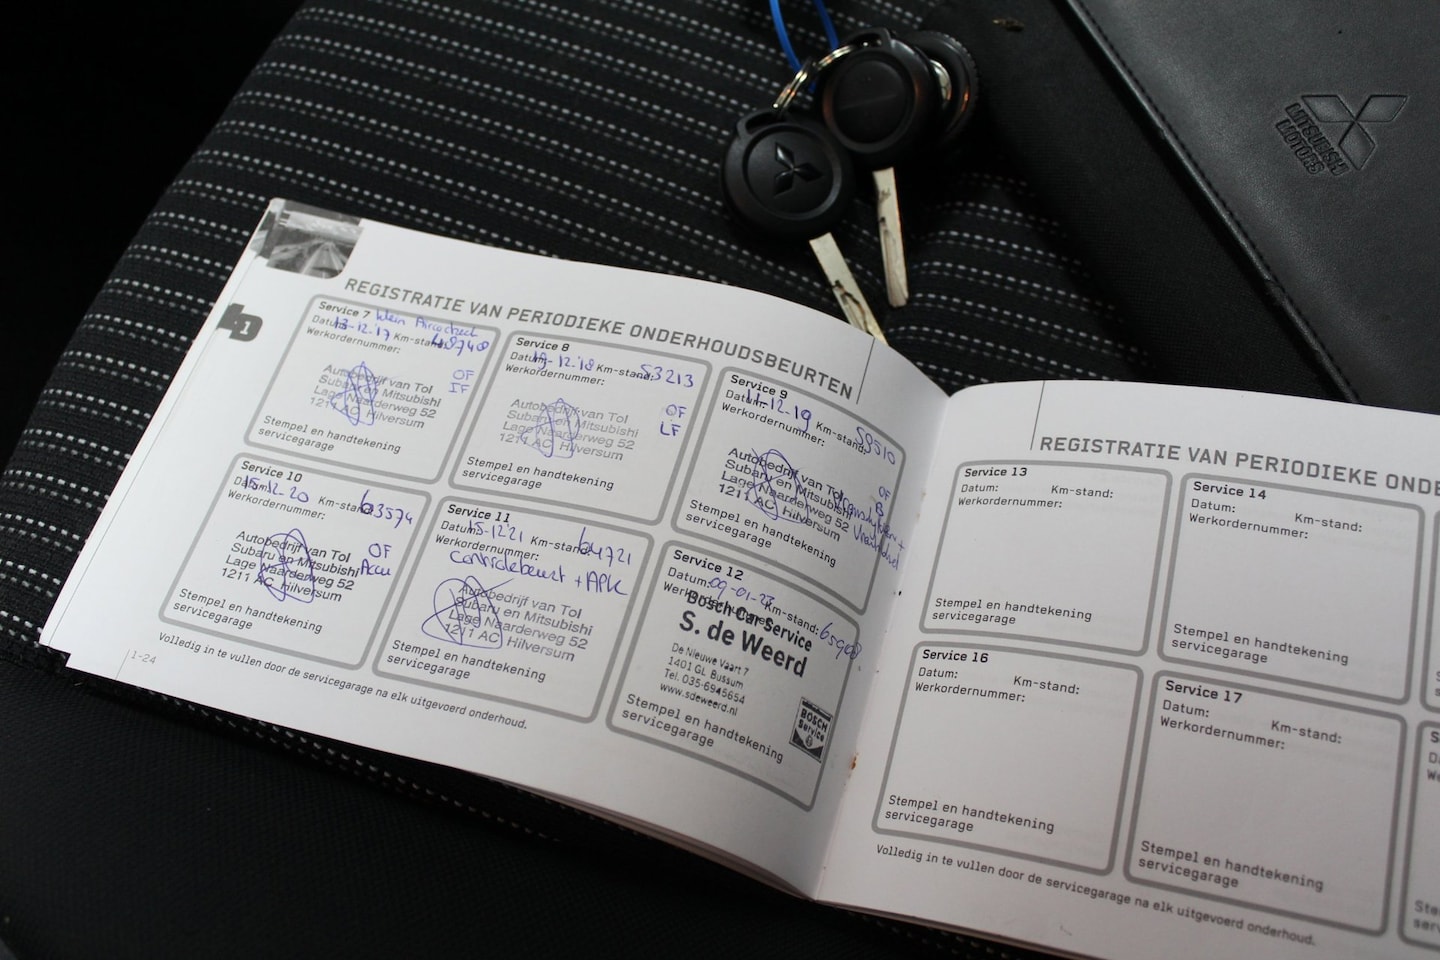 MITSUBISHI
MOTORS
1
REGISTRATIE VAN PERIODIEKE ONDERHOUDSBEURTEN
Service 7 klein Aircocheck
Datum: 13-12-'17 Km-stand: 48740
Werkordernummer:
OF
IF
Autobedrijf van Tol
Subaru en Mitsubishi
Lage Naarderweg 52
1211 AC Hilversum
Stempel en handtekening
servicegarage
Service 8
Datum: 19-12-'18 Km-stand: 53213
Werkordernummer:
OF
LF
Autobedrijf van Tol
Subaru en Mitsubishi
Lage Naarderweg 52
1211 AC Hilversum
Stempel en handtekening
servicegarage
Service 9
Datum: 11-12-19 Km-stand: 58510
Werkordernummer:
OF
B
Autobedrijf van Tol
Subaru en Mitsubishi
Lage Naarderweg 52
1211 AC Hilversum
Stempel en handtekening
servicegarage
Service 10
Datum: 15-12-20 Km-stand: 63574
Werkordernummer:
OF
Accu
Autobedrijf van Tol
Subaru en Mitsubishi
Lage Naarderweg 52
1211 AC Hilversum
Stempel en handtekening
servicegarage
Service 11
Datum: 15-12-21 Km-stand: 64721
Werkordernummer:
Controlebeurt + APK
Autobedrijf van Tol
Subaru en Mitsubishi
Lage Naarderweg 52
1211 AC Hilversum
Stempel en handtekening
servicegarage
Service 12
Datum: 09-01-23 Km-stand: 65908
Werkordernummer:
Bosch Car Service
S. de Weerd
De Nieuwe Vaart 7
1401 GL Bussum
Tel. 035-6945654
www.sdeweerd.nl
BOSCH
Service
Stempel en handtekening
servicegarage
1-24
Volledig in te vullen door de servicegarage na elk uitgevoerd onderhoud.
REGISTRATIE VAN PERIODIEKE ONDE
Service 13
Datum: Km-stand:
Werkordernummer:
Stempel en handtekening
servicegarage
Service 14
Datum: Km-stand:
Werkordernummer:
Stempel en handtekening
servicegarage
Service 16
Datum: Km-stand:
Werkordernummer:
Stempel en handtekening
servicegarage
Service 17
Datum: Km-stand:
Werkordernummer:
Stempel en handtekening
servicegarage
Volledig in te vullen door de servicegarage na elk uitgevoerd onderhoud.